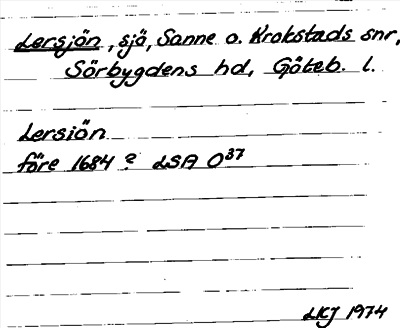 Lersjön, sjö, Sanne o. Krokstads snr,
Sörbygdens hd, Göteb. l.
Lersiön
före 1684 ? LSA O37
LKJ 1974